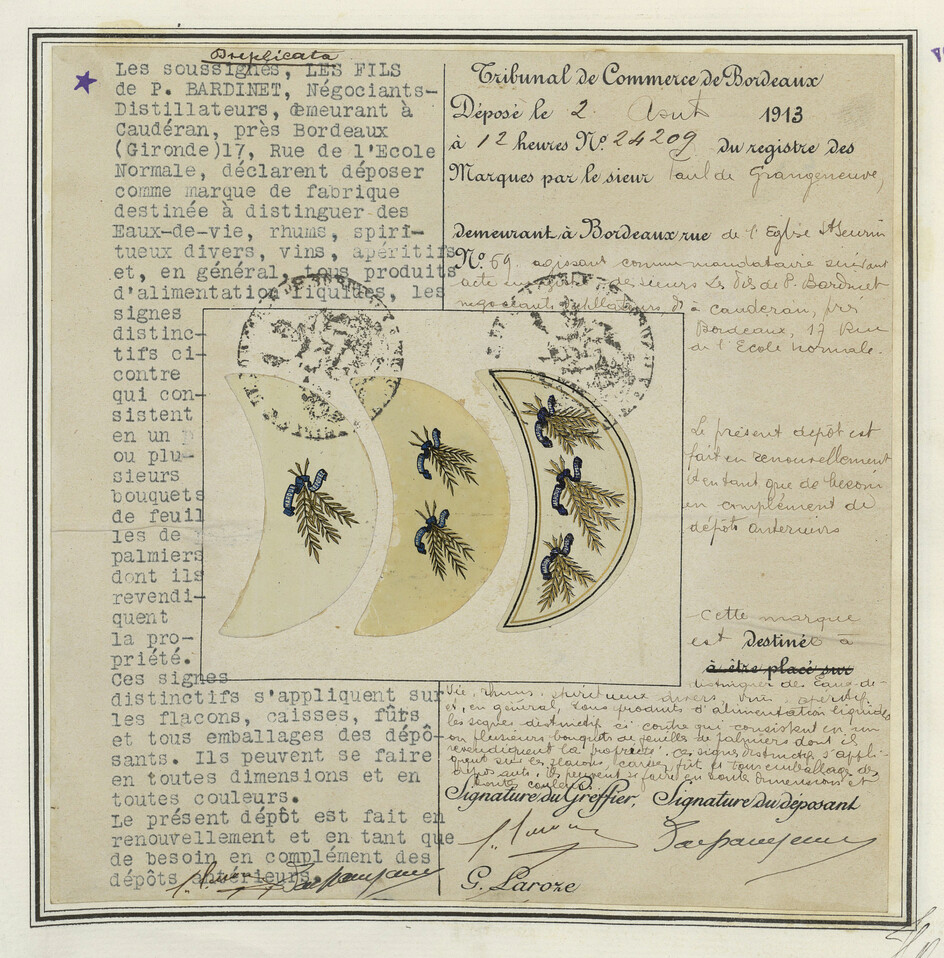 Duplicata
Les soussignés, LES FILS
de P. BARDINET, Négociants-
Distillateurs, demeurant à
Caudéran, près Bordeaux
(Gironde)17, Rue de l'Ecole
Normale, déclarent déposer
comme marque de fabrique
destinée à distinguer des
Eaux-de-vie, rhums, spiri-
tueux divers, vins, apéritifs
et, en général, tous produits
d'alimentation liquides, les
signes
distinc-
tifs ci-
contre
qui con-
sistent
en un
ou plu-
sieurs
bouquets
de feuil
les de
palmiers
dont ils
revendi-
quent
la pro-
priété.
Ces signes
distinctifs s'appliquent sur
les flacons, caisses, fûts
et tous emballages des dépô-
sants. Ils peuvent se faire
en toutes dimensions et en
toutes couleurs.
Le présent dépôt est fait en
renouvellement et en tant que
de besoin en complément des
dépôts antérieurs.
Tribunal de Commerce de Bordeaux
Déposé le 2 Août 1913
à 12 heures Nº 24209 du registre des
Marques par le sieur Paul de Grangeneuve,
demeurant à Bordeaux rue de l'Eglise St Seurin
Nº 69 agissant comme mandataire suivant
acte de sieurs Les Fils de P. Bardinet
négociants distillateurs à Caudéran, près
Bordeaux, 17 Rue
de l'Ecole normale.
Le présent dépôt est
fait en renouvellement
et en tant que de besoin
en complément de
dépôts antérieurs
Cette marque
est destinée à
à être placé sur
distinguer des Eaux-de-
vie, rhums, spiritueux divers, vins, apéritifs
et, en général, tous produits d'alimentation liquides
les signes distinctifs ci contre qui consistent en un
ou plusieurs bouquets de feuilles de palmiers dont ils
revendiquent la propriété. Ces signes distinctifs s'appli-
quent sur les flacons, caisses, fûts et tous emballages des
déposants. Ils peuvent se faire en toutes dimensions et
toutes couleurs.
Signature du Greffier, Signature du déposant
G. Laroze